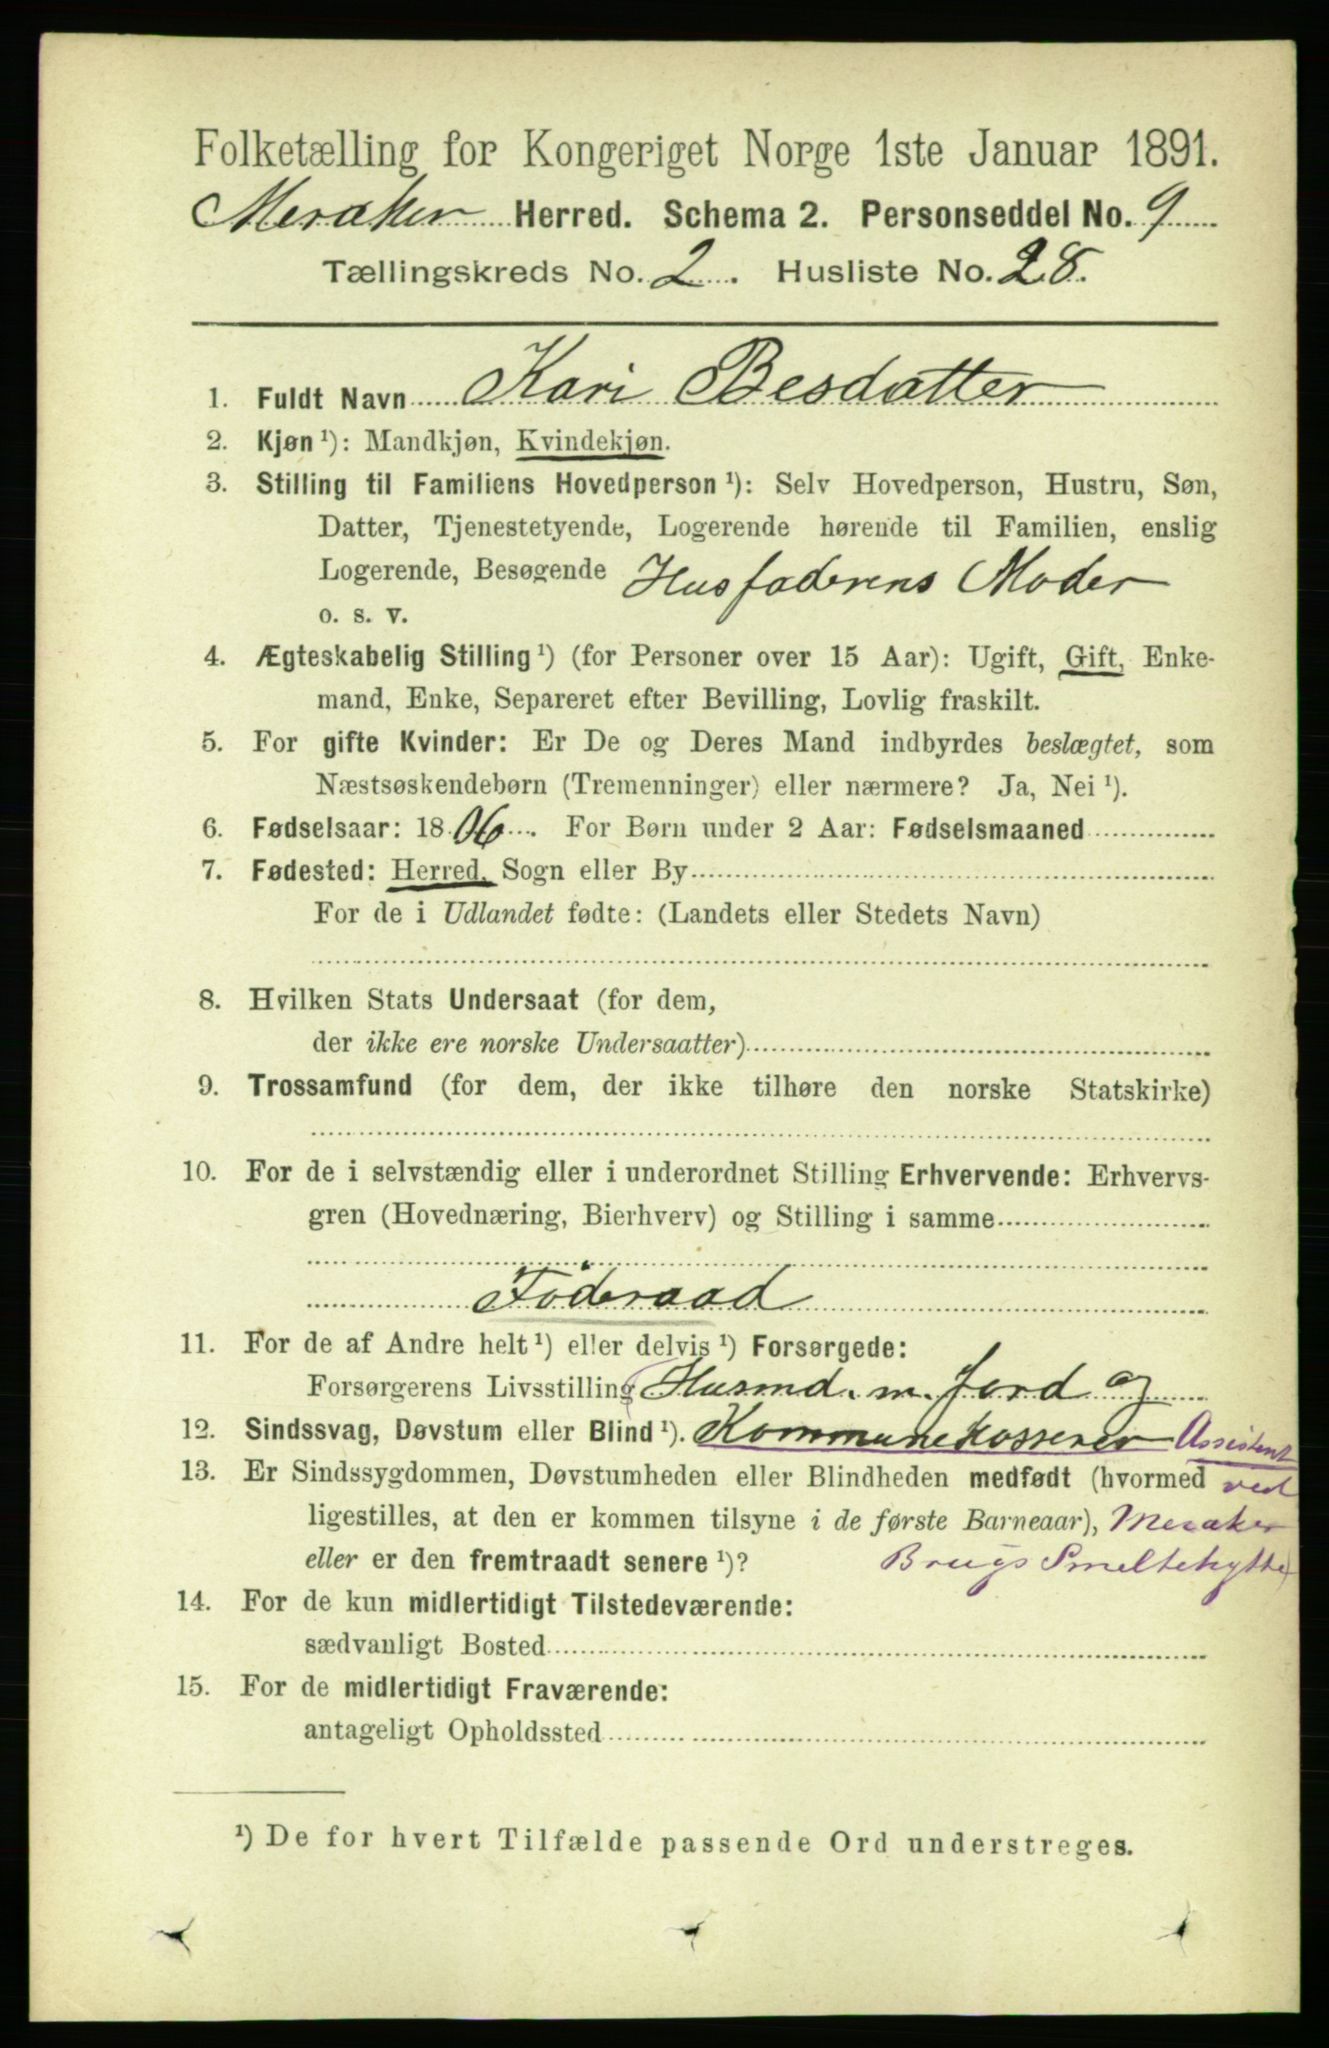 Folketælling for Kongeriget Norge 1ste Januar 1891.
Meraker Herred. Schema 2. Personseddel No. 9
Tællingskreds No. 2. Husliste No. 28.
1. Fuldt Navn Kari Besdatter
2. Kjøn ¹): Mandkjøn, Kvindekjøn.
3. Stilling til Familiens Hovedperson ¹): Selv Hovedperson, Hustru, Søn,
Datter, Tjenestetyende, Logerende hørende til Familien, enslig
Logerende, Besøgende Husfaderens Moder
o. s. v.
4. Ægteskabelig Stilling ¹) (for Personer over 15 Aar): Ugift, Gift, Enke-
mand, Enke, Separeret efter Bevilling, Lovlig fraskilt.
5. For gifte Kvinder: Er De og Deres Mand indbyrdes beslægtet, som
Næstsøskendebørn (Tremenninger) eller nærmere? Ja, Nei ¹).
6. Fødselsaar: 1806. For Børn under 2 Aar: Fødselsmaaned
7. Fødested: Herred, Sogn eller By
For de i Udlandet fødte: (Landets eller Stedets Navn)
8. Hvilken Stats Undersaat (for dem,
der ikke ere norske Undersaatter)
9. Trossamfund (for dem, der ikke tilhøre den norske Statskirke)
10. For de i selvstændig eller i underordnet Stilling Erhvervende: Erhvervs-
gren (Hovednæring, Bierhverv) og Stilling i samme
Föderaad
11. For de af Andre helt ¹) eller delvis ¹) Forsørgede:
Forsørgerens Livsstilling (Husmd. m. Jord og
12. Sindssvag, Døvstum eller Blind ¹). Kommunekasserer Assistent
13. Er Sindssygdommen, Døvstumheden eller Blindheden medfødt (hvormed ved
ligestilles, at den er kommen tilsyne i de første Barneaar), Meraker
eller er den fremtraadt senere ¹)? Brugs Smeltehytte)
14. For de kun midlertidigt Tilstedeværende:
sædvanligt Bosted
15. For de midlertidigt Fraværende:
antageligt Opholdssted
¹) De for hvert Tilfælde passende Ord understreges.